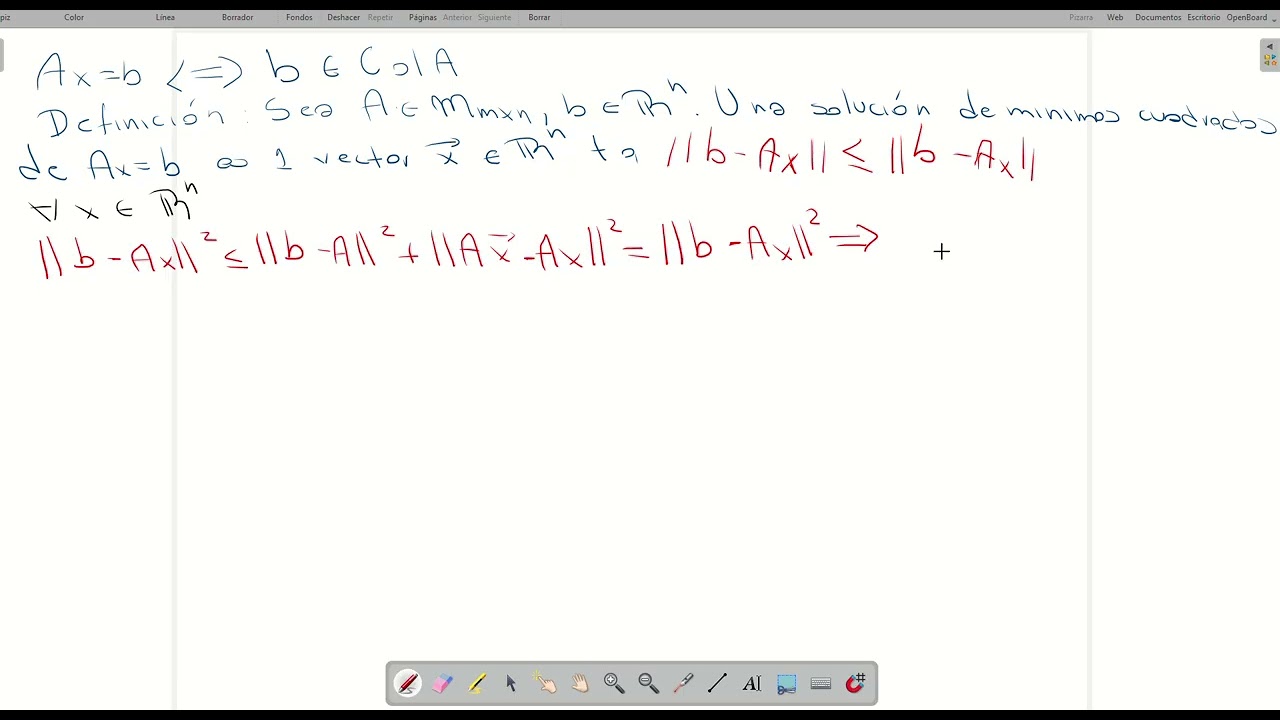 piz Color Línea Borrador Fondos Deshacer Repetir Páginas Anterior Siguiente Borrar Pizarra Web Documentos Escritorio OpenBoard
Ax=b ⟺ b ∈ Col A
Definición: Sea A ∈ Mmxn, b ∈ ℝⁿ. Una solución de minimos cuadrados
de Ax=b es 1 vector x⃗ ∈ ℝⁿ tq ||b - Ax|| ≤ ||b - Ax||
∀ x ∈ ℝⁿ
||b - Ax||² ≤ ||b - A||² + ||Ax⃗ - Ax||² = ||b - Ax||² ⟹
AI